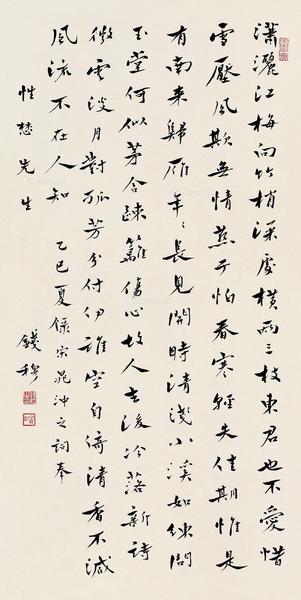 瀟灑江梅向竹梢深處橫兩三枝東君也不愛惜
雪壓風欺無情燕子怕春寒輕失佳期惟是
有南來歸雁年〻長見開時清淺小溪如練問
玉堂何似茅舍疎籬傷心故人去後冷落新詩
微雲淡月對孤芳分付伊誰空自倚清香不減
風流不在人知
乙巳夏錄宋晁沖之詞奉
性慈先生
錢穆